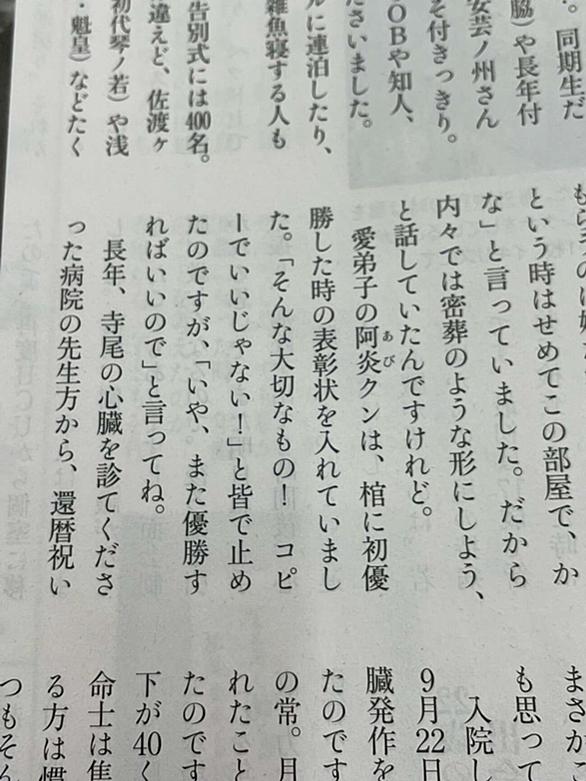 。同期生だ
脇）や長年付
安芸ノ州さん
そ付きっきり。
OBや知人、
ださいました。
ルに連泊したり、
雑魚寝する人も
告別式には400名。
違えど、佐渡ヶ
初代琴ノ若）や浅
・魁皇）などたく
という時はせめてこの部屋で、か
な」と言っていました。だから
内々では密葬のような形にしよう、
と話していたんですけれど。
愛弟子の阿炎クンは、棺に初優
あび
勝した時の表彰状を入れていまし
た。「そんな大切なもの！　コピ
ーでいいじゃない！」と皆で止め
たのですが、「いや、また優勝す
ればいいので」と言ってね。
長年、寺尾の心臓を診てくださ
った病院の先生方から、還暦祝い
まさか
も思って
入院し
9月22日
臓発作を
たのです
の常。月
れたこと
たのです
下が40く
命士は焦
る方は慣
つもそん